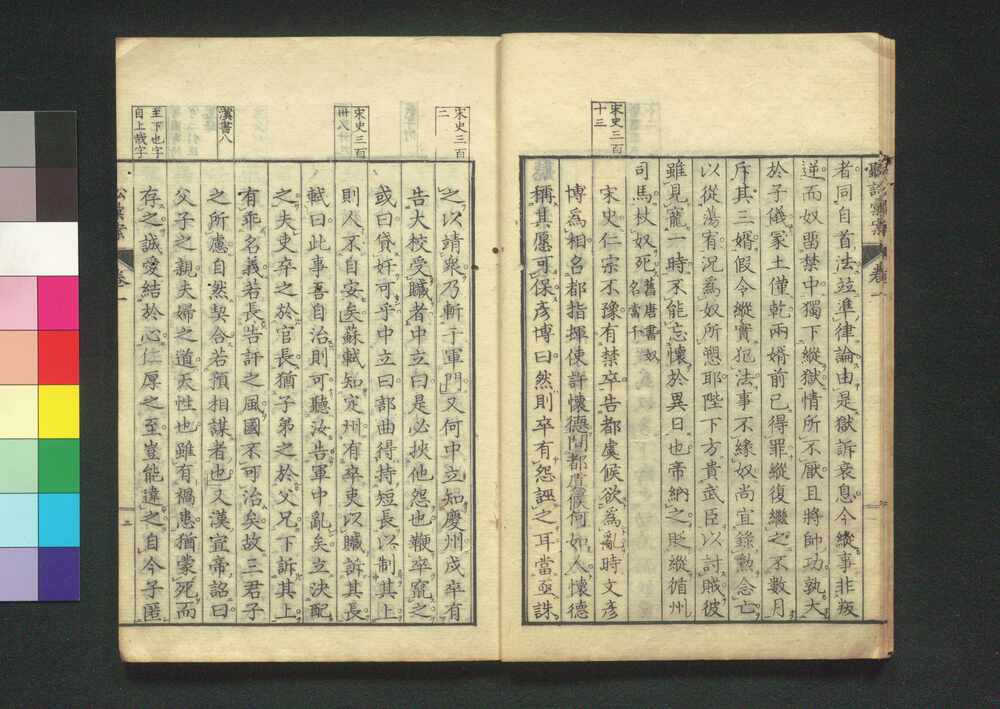 宋史三百
十三
者同自首法竝準律論由是獄訴衰息今縱事非叛
逆而奴畱禁中獨下縱獄情所不厭且將帥功孰大
於子儀冢土僅乾兩婿前已得罪縱復繼之不數月
斥其三婿假令縱實犯法事不緣奴尚宜錄勲念亡
以從蕩宥況為奴所愬耶陛下方貴武臣以討賊彼
雖見寵一時不能忘懷於異日也帝納之貶縱循州
司馬杖奴死舊唐書奴
名當千
宋史仁宗不豫有禁卒告都虞候欲為亂時文彥
博為相名都指揮使許懷德問都虞候何如人懷德
稱其愿可保彥博曰然則卒有怨誣之耳當亟誅
宋史三百
二
之以靖衆乃斬于軍門又何中立知慶州戍卒有
告大校受贓者中立曰是必挾他怨也鞭卒竄之
或曰貸奸可乎中立曰部曲得持短長以制其上
宋史三百
卅八
則人不自安矣蘇軾知定州有卒吏以贓訴其長
軾曰此事吾自治則可聽汝告軍中亂矣立決配
之夫吏卒之於官長猶子弟之於父兄下訴其上
有乖名義若長告訐之風國不可治矣故三君子
漢書八
之所慮自然契合若預相謀者也又漢宣帝詔曰
父子之親夫婦之道天性也雖有禍患猶蒙死而
至下也字
自上哉字
存之誠愛結於心仁厚之至豈能違之自今子匿